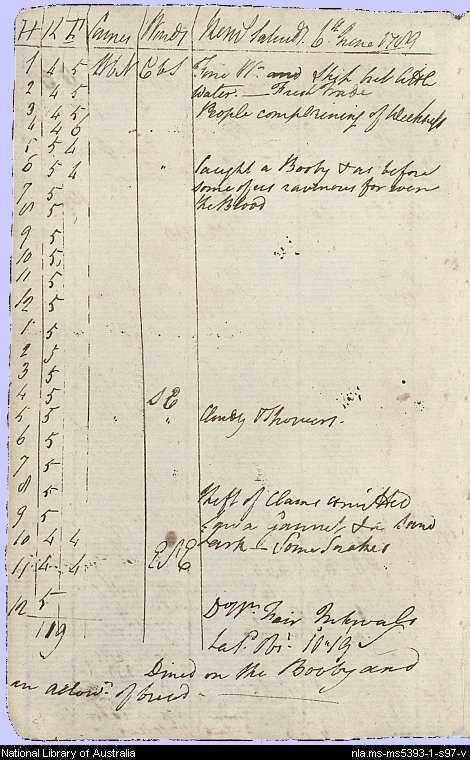 H K F Courses Winds New Holland. 6th June 1789
1 4 5 West EbS Fine Wr. and Ship but little
2 4 5 water. — Fresh Trade
3 4 5 People complaining of Weakness
4 4 6
5 5 4
6 5 4 " Caught a Booby & as before
7 5 some of us ravenous for even
8 5 the Blood
9 5
10 5
11 5
12 5
1 5
2 5
3 5
4 5 SE
5 5 " " Cloudy & Showers.
6 5
7 5
8 5
9 5 theft of Clams committed
10 4 4 and a
11 4 4 ESE Lark — Some Snakes
12 5
119 Do Wr. Fair Intervals
Latd. Obs. 10.19
Dined on the Booby and
an allowe. of bread. —
National Library of Australia
nla.ms-ms5393-1-s97-v